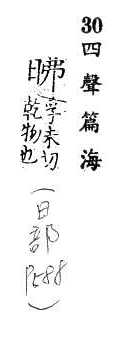 30四聲篇海
昲
孚未切
乾物也
(日部
P588)